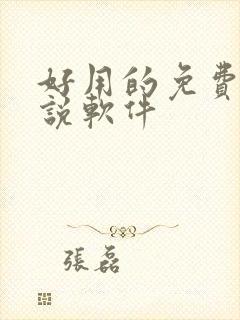 好用的免費
說軟件
張磊